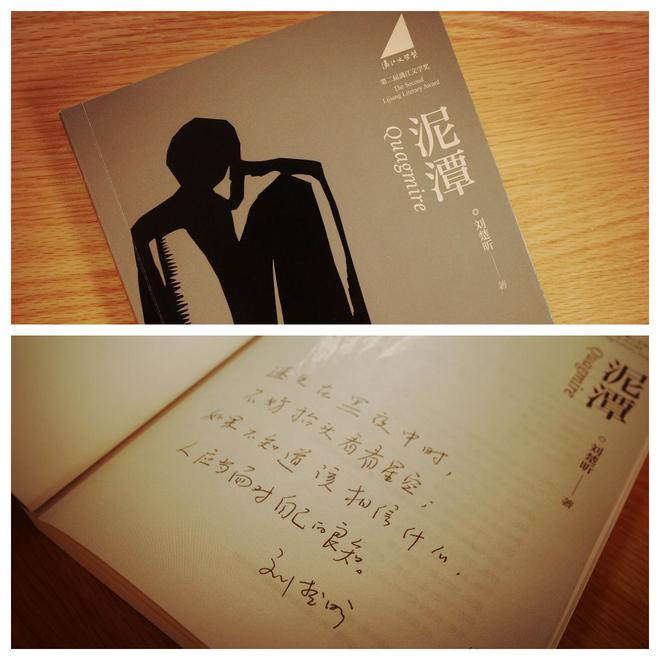 漓江文学奖
第二届漓江文学奖
The Second
Lijiang Literary Award
泥潭
Quagmire
刘楚昕
著
泥潭
Quagmire
刘楚昕
著
在黑夜中时，
不妨抬头看看星空；
如果不知道该相信什么，
人应当面对自己的良知。
刘楚昕